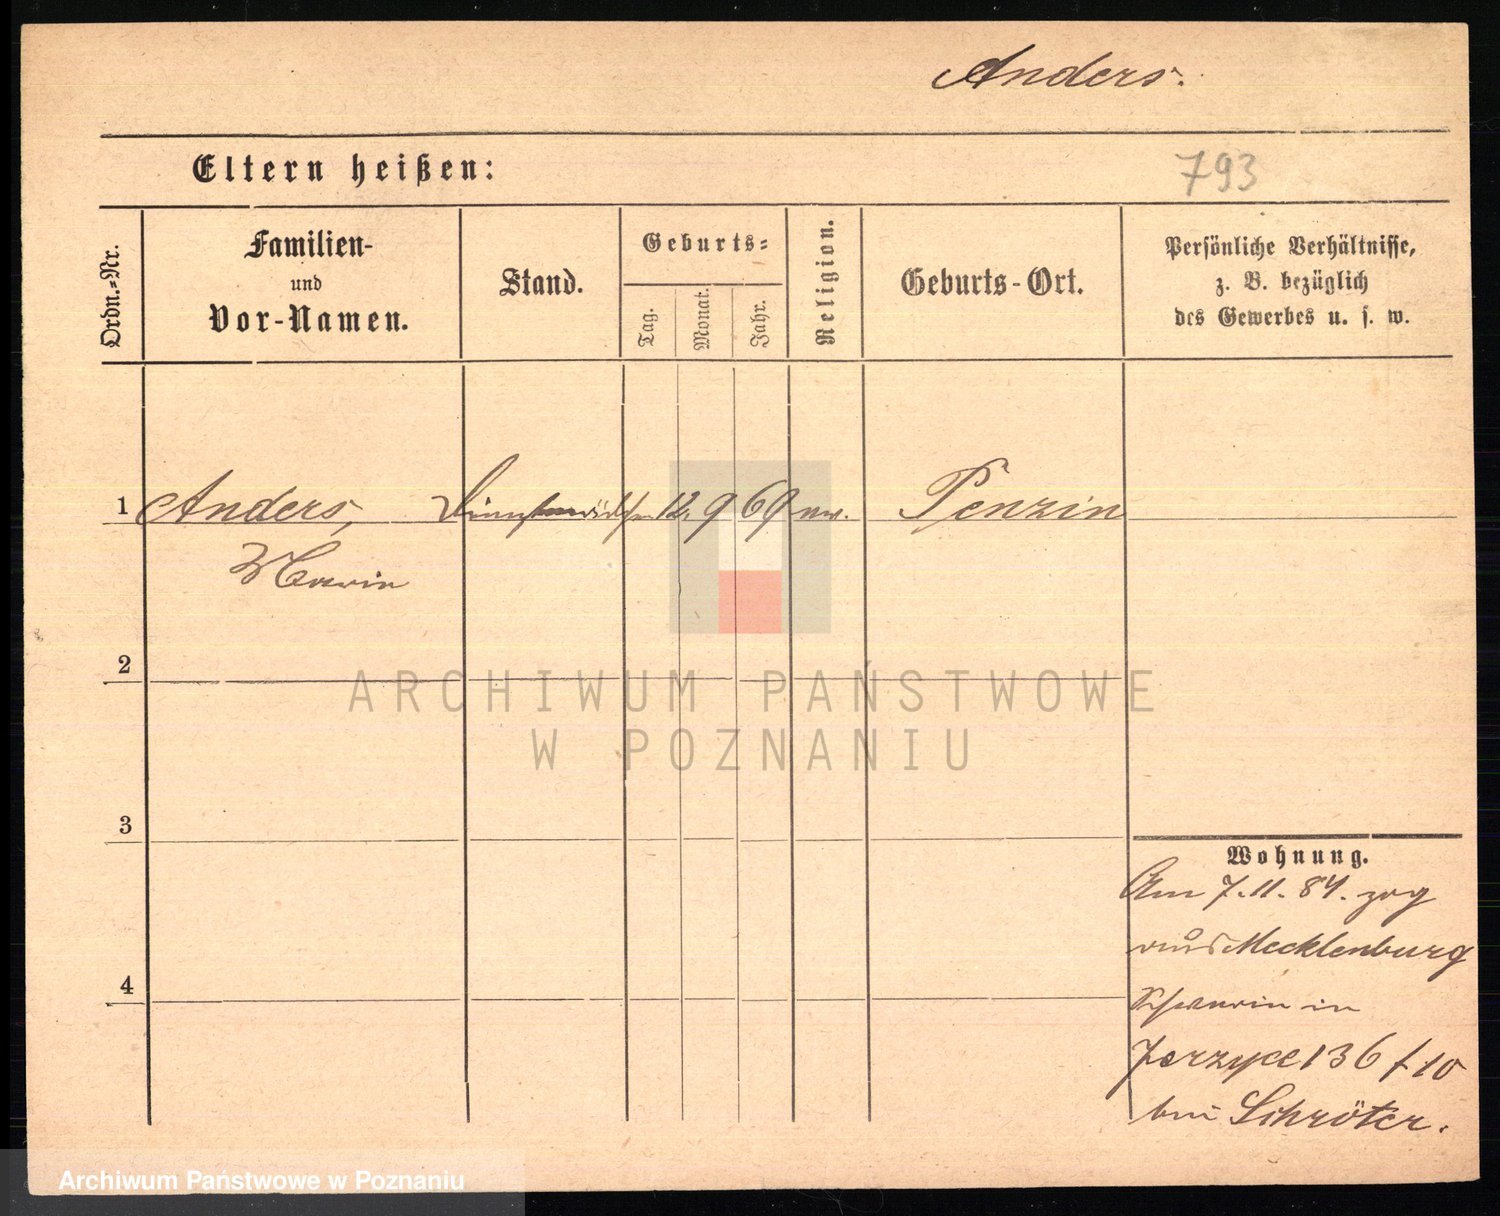 Anders.
Eltern heißen:
793
Ordn.=Nr.
Familien-
und
Vor-Namen.
Stand.
Geburts=
Tag.
Monat.
Jahr.
Religion.
Geburts-Ort.
Persönliche Verhältnisse,
z. B. bezüglich
des Gewerbes u. s. w.
1 Anders, 12. 9 69 ew. Penzin
Marie
ARCHIWUM PAŃSTWOWE
W POZNANIU
2
3
4
Wohnung.
Am 7. 11. 84. zog
aus Mecklenburg
Schwerin in
Jerzyce 136 f 10
bei Schröter.
Archiwum Państwowe w Poznaniu